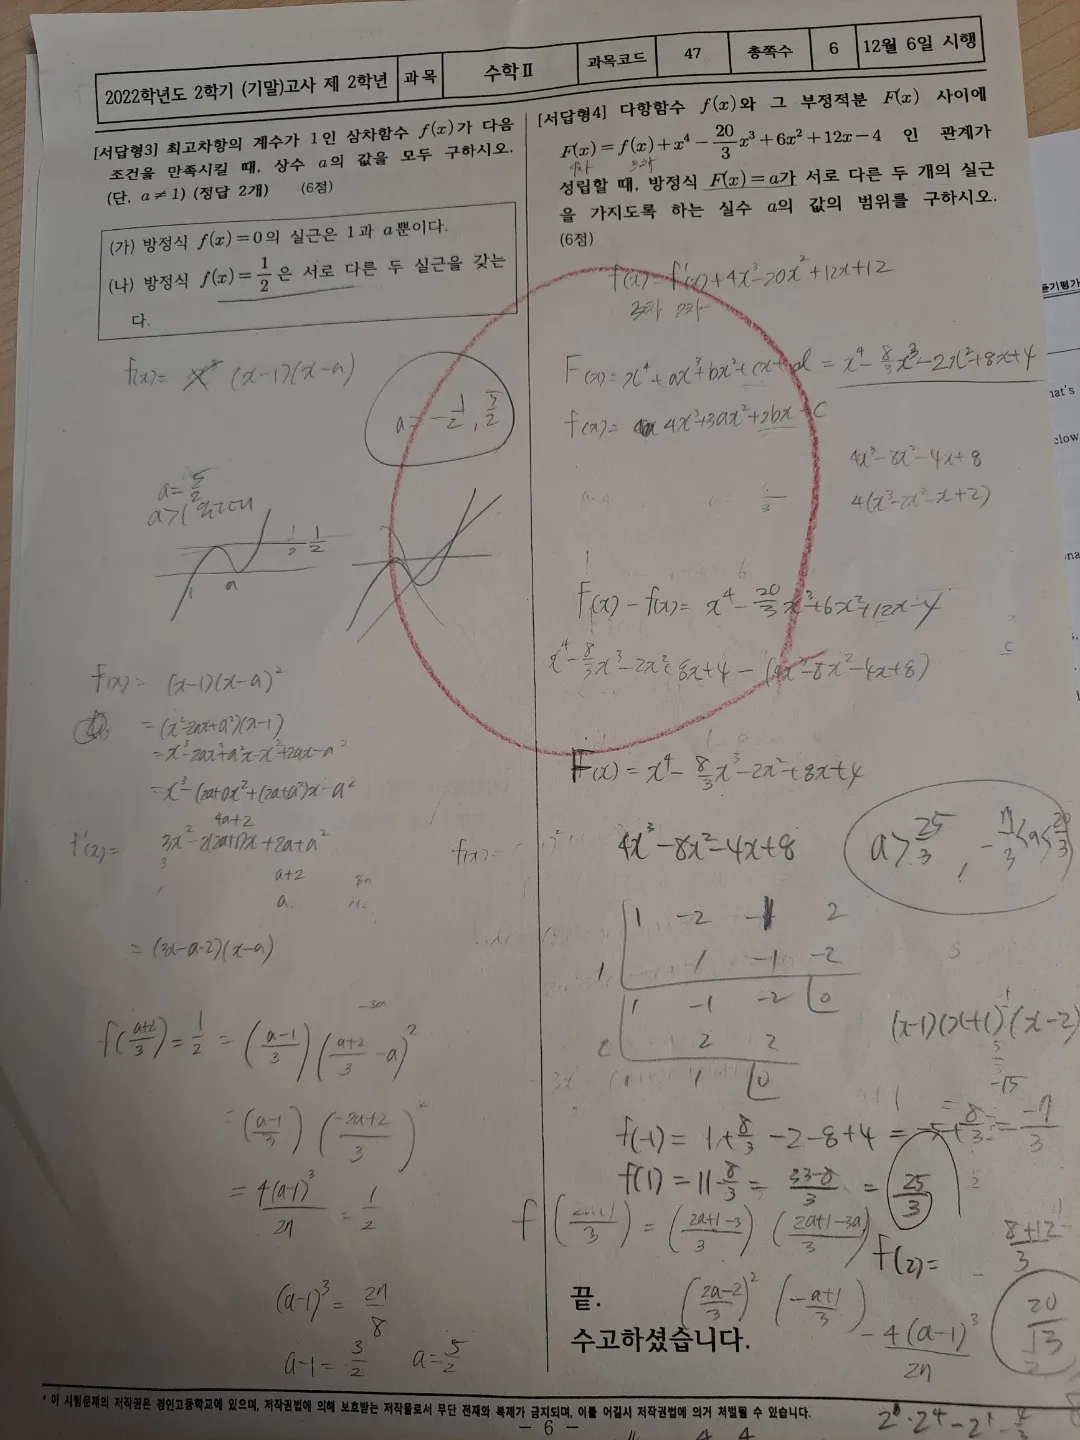 2022학년도 2학기 (기말)고사 제 2학년 과목 수학Ⅱ 과목코드 47 총쪽수 6 12월 6일 시행
[서답형3] 최고차항의 계수가 1인 삼차함수 f(x)가 다음
조건을 만족시킬 때, 상수 a의 값을 모두 구하시오.
(단, a≠1) (정답 2개) (6점)
(가) 방정식 f(x)=0의 실근은 1과 a뿐이다.
(나) 방정식 f(x)=1/2은 서로 다른 두 실근을 갖는
다.
f(x)= (x-1)(x-a)
a=-1/2, 5/2
a=5/2
a>1
1/2 1/2
a
f(x)= (x-1)(x-a)²
=(x²-2ax+a²)(x-1)
=x³-2ax²+a²x-x²+2ax-a²
=x³-(2a+1)x²+(2a+a²)x-a²
4a+2
f'(x)= 3x²-2(2a+1)x+2a+a²
a+2
a
=(3x-a-2)(x-a)
f(a+2/3)=1/2=(a-1/3)(a+2/3-a)²
=(a-1/3)(-2a+2/3)²
=4(a-1)³/27=1/2
(a-1)³=27/8
a-1=3/2 a=5/2
[서답형4] 다항함수 f(x)와 그 부정적분 F(x) 사이에
F(x)=f(x)+x⁴-20/3x³+6x²+12x-4 인 관계가
성립할 때, 방정식 F(x)=a가 서로 다른 두 개의 실근
을 가지도록 하는 실수 a의 값의 범위를 구하시오.
(6점)
f(x)=f'(x)+4x³-20x²+12x+12
3차 2차
F(x)=x⁴+ax³+bx²+cx+d=x⁴-8/3x³-2x²+8x+4
f(x)= 4x³+3ax²+2bx+C
4x³-8x²-4x+8
4(x³-2x²-x+2)
F(x)-f(x)=x⁴-20/3x³+6x²+12x-4
x⁴-8/3x³-2x²+8x+4-(4x³-8x²-4x+8)
F(x)=x⁴-8/3x³-2x²+8x+4
4x³-8x²-4x+8
a>25/3, -7/3<a<20/3
1 -2 -1 2
1 1 -1 -2
1 -1 -2 0
2 2 2
1 1 0
(x-1)(x+1)(x-2)
-15
f(-1)=1+8/3-2-8+4=-5+8/3=-7/3
f(1)=11-8/3=33-8/3=25/3
=(2a+1-3/3)(2a+1-3a/3)
f(2)=
8+12/3
20/3
(2a-2/3)²(-a+1/3)
-4(a-1)³/27
끝.
수고하셨습니다.
* 이 시험문제의 저작권은 경인고등학교에 있으며, 저작권법에 의해 보호받는 저작물로서 무단 전재와 복제가 금지되며, 이를 어길시 저작권법에 의거 처벌될 수 있습니다.
- 6 -
듣기평가